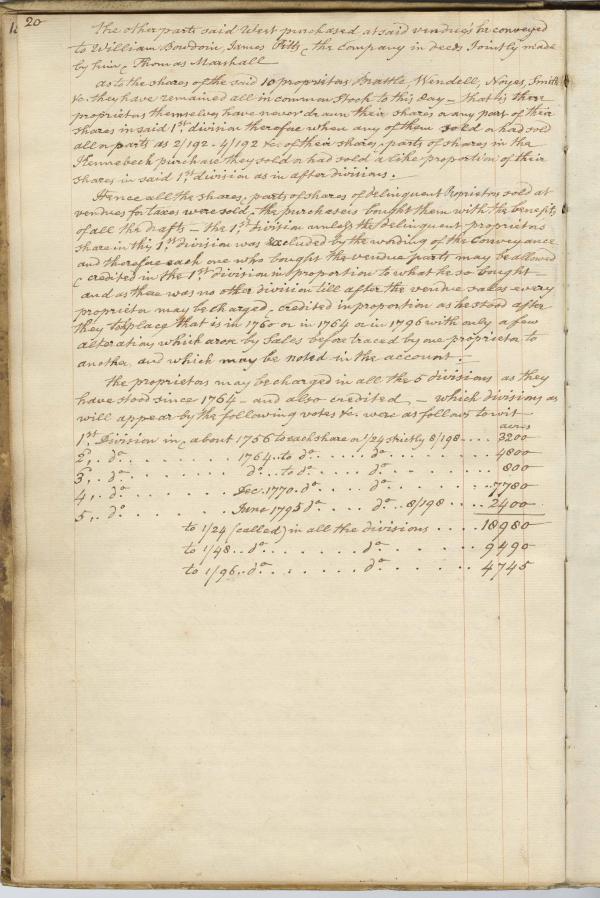 20
The other parts said West purchased at said vendues he conveyed
to William Bowdoin, James Pitts & the Company in deeds Jointly made
by him & Thomas Marshall
as to the shares of the said 10 proprietors Brattle, Wendell, Noyes, Smith
&c. they have remained all in common stock to this day – that is these
proprietors themselves have never drawn their shares or any part of their
shares in said 1st. division therefore when any of them sold or had sold
all or parts as 2/192 - 4/192 &c of their shares, parts of shares in the
Kennebeck purchase they sold or had sold a like proportion of their
shares in said 1st division as in after divisions.
Hence all the shares & parts of shares of delinquent Proprietors sold at
vendues for taxes were sold & the purchasers bought them with the benefits
of all the drafts – the 1st division unless the delinquent proprietors
share in thy 1st division was Excluded by the wording of the Conveyance
and therefore each one who bought the vendue parts may be allowed
& credited in the 1st division in proportion to what he so bought –
and as there was no other division till after the vendue sales every
proprietor may be charged & credited in proportion as he stood after
they took place that is in 1760 or in 1764 or in 1796 with only a few
alterations which arose by Sales before traced by one proprietor to
another and which may be noted in the account. –
The proprietors may be charged in all the 5 divisions as they
have stood since 1764 – and also credited – which divisions as
will appear by the following votes &c. were as follows to wit
acres
1st. Division in & about 1756 to each share or 1/24 strictly 8/198 .... 3200
2, .. do. ........ 1764 .. to do. ..... do. ....... 4800
3, . do. ........ do. ... to do. .... do. ....... 800
4, . do. ........ Dec. 1770. do. .... do. ....... 7780
5, . do. ........ June 1795 do. .... do. .. 8/198 .... 2400
to 1/24 (called) in all the divisions .... 18980
to 1/48 .. do. ....... do. ....... 9490
to 1/96 .. do. ....... do. ....... 4745